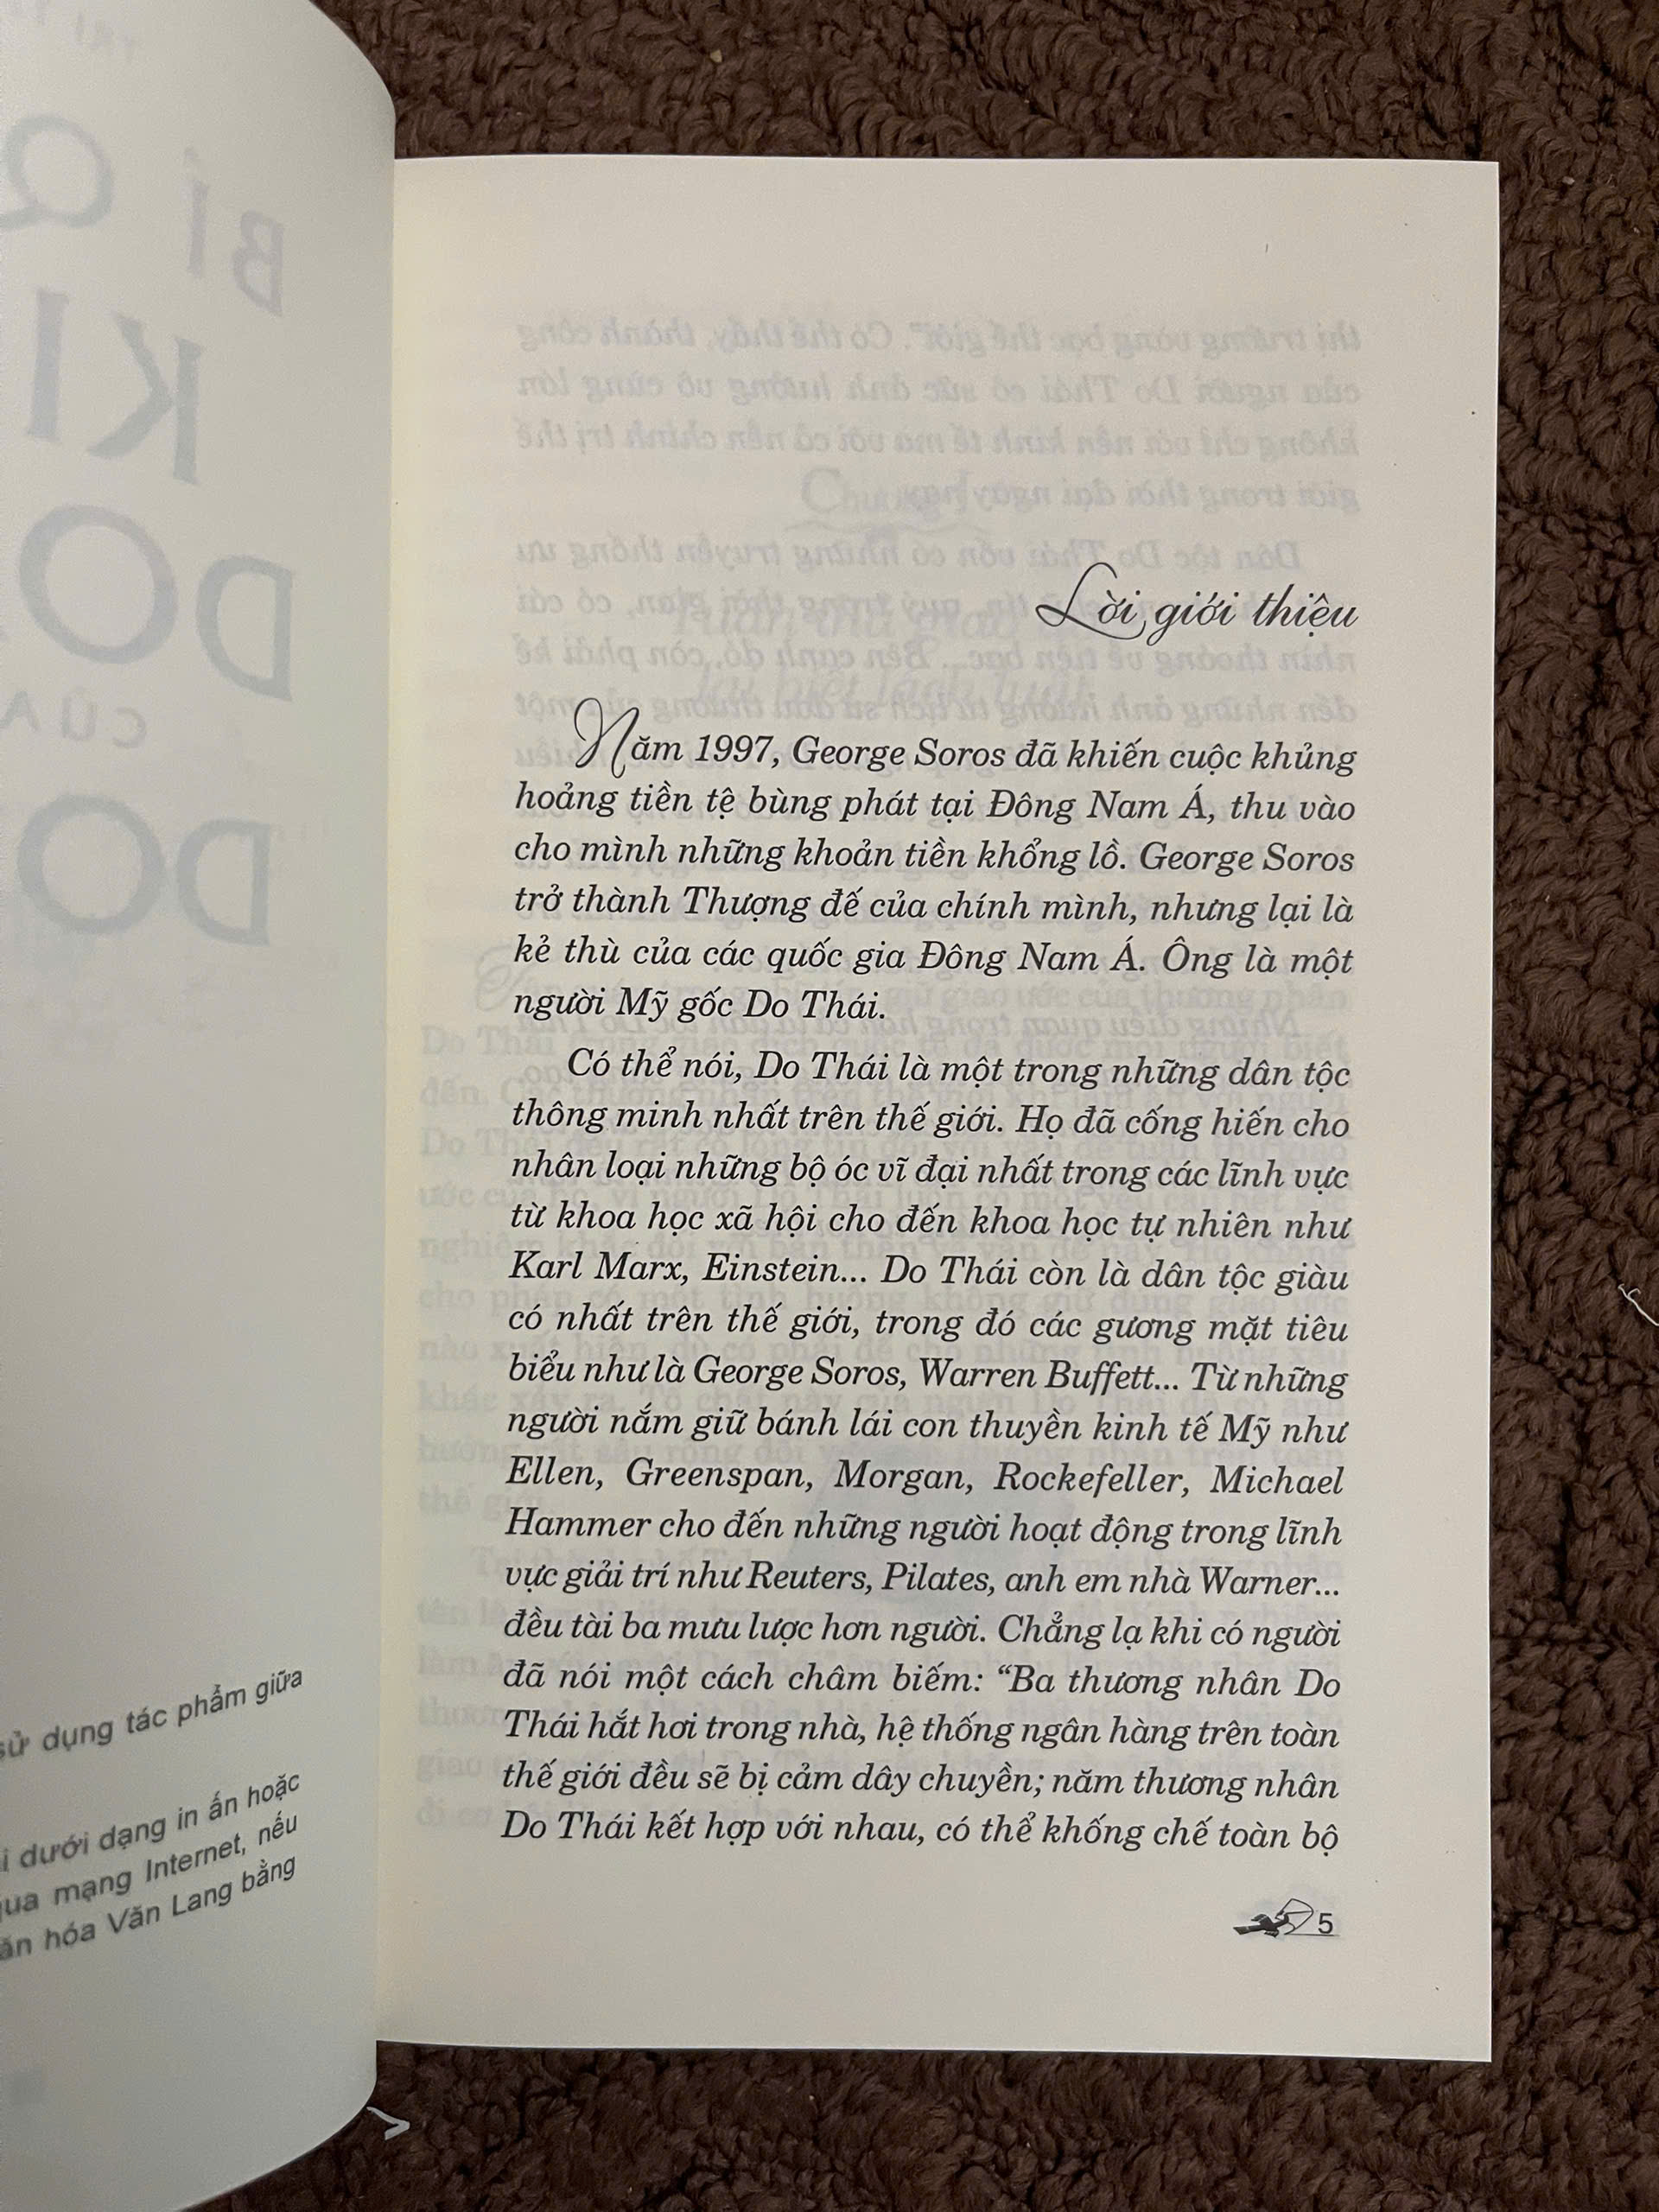 BÍ Q
KI
DO
CỦA
DO
sử dụng tác phẩm giữa
dưới dạng in ấn hoặc
qua mạng Internet, nếu
hóa Văn Lang bằng
Lời giới thiệu
Năm 1997, George Soros đã khiến cuộc khủng
hoảng tiền tệ bùng phát tại Đông Nam Á, thu vào
cho mình những khoản tiền khổng lồ. George Soros
trở thành Thượng đế của chính mình, nhưng lại là
kẻ thù của các quốc gia Đông Nam Á. Ông là một
người Mỹ gốc Do Thái.
Có thể nói, Do Thái là một trong những dân tộc
thông minh nhất trên thế giới. Họ đã cống hiến cho
nhân loại những bộ óc vĩ đại nhất trong các lĩnh vực
từ khoa học xã hội cho đến khoa học tự nhiên như
Karl Marx, Einstein... Do Thái còn là dân tộc giàu
có nhất trên thế giới, trong đó các gương mặt tiêu
biểu như là George Soros, Warren Buffett... Từ những
người nắm giữ bánh lái con thuyền kinh tế Mỹ như
Ellen, Greenspan, Morgan, Rockefeller, Michael
Hammer cho đến những người hoạt động trong lĩnh
vực giải trí như Reuters, Pilates, anh em nhà Warner...
đều tài ba mưu lược hơn người. Chẳng lạ khi có người
đã nói một cách châm biếm: “Ba thương nhân Do
Thái hắt hơi trong nhà, hệ thống ngân hàng trên toàn
thế giới đều sẽ bị cảm dây chuyền; năm thương nhân
Do Thái kết hợp với nhau, có thể khống chế toàn bộ
5